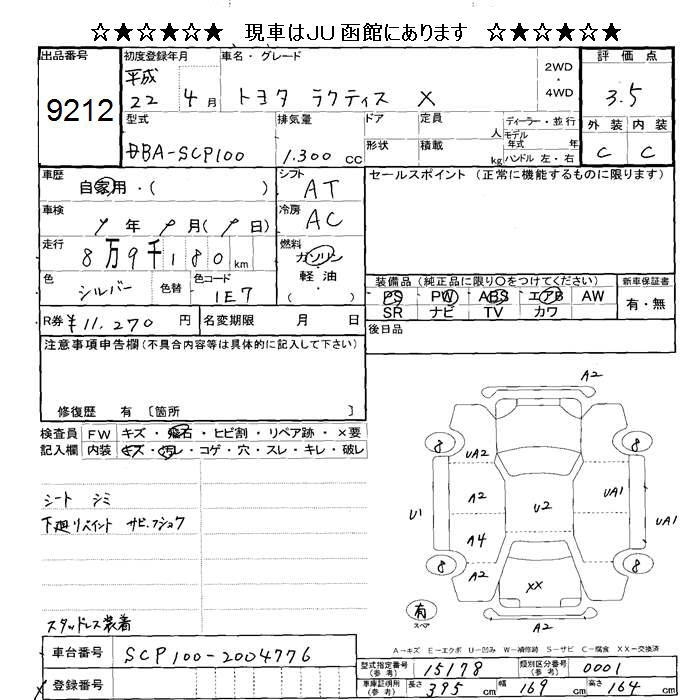 ☆★☆★☆★ 現車はJU函館にあります ☆★☆★☆★
出品番号
9212
初度登録年月
平成
22 4月
車名・グレード
トヨタ ラクティス X
2WD
・
4WD
評価点
3.5
外装 内装
C C
型式
DBA-SCP100
排気量
1.300 cc
ドア
形状
定員
人
積載
kg
ディーラー・並行
モデル
年式 年
ハンドル 左・右
車歴
自家用・( )
シフト
AT
セールスポイント (正常に機能するものに限ります)
車検
年 月( 日)
冷房
AC
走行
8万9千180km
燃料
ガソリン
軽油
( )
色
シルバー
色替
色コード
1E7
装備品 (純正品に限り○をつけてください)
PS PW ABS エアB AW
SR ナビ TV カワ
新車保証書
有・無
R券 ¥11,270 円
名変期限 月 日
後日品
注意事項申告欄(不具合内容等は具体的に記入して下さい)
修復歴 有 〔箇所 〕
検査員
記入欄
FW キズ・飛石・ヒビ割・リペア跡・×要
内装 キズ・汚レ・コゲ・穴・スレ・キレ・破レ
シート シミ
下廻リペイント サビ.フショク
スタッドレス装着
A2
8 8
UA2
A2
U1
U2
UA1
UA1
A4
A2
8 8
XX
有
スペア
A2
A-キズ E-エクボ U-凹み W-補修跡 S-サビ C-腐食 XX-交換済
車台番号
SCP100-2004776
登録番号
型式指定番号
(参考)
15178
類別区分番号
(参考)
0001
車庫証明用
(参考)
長さ 395 幅 169 高さ 164 cm